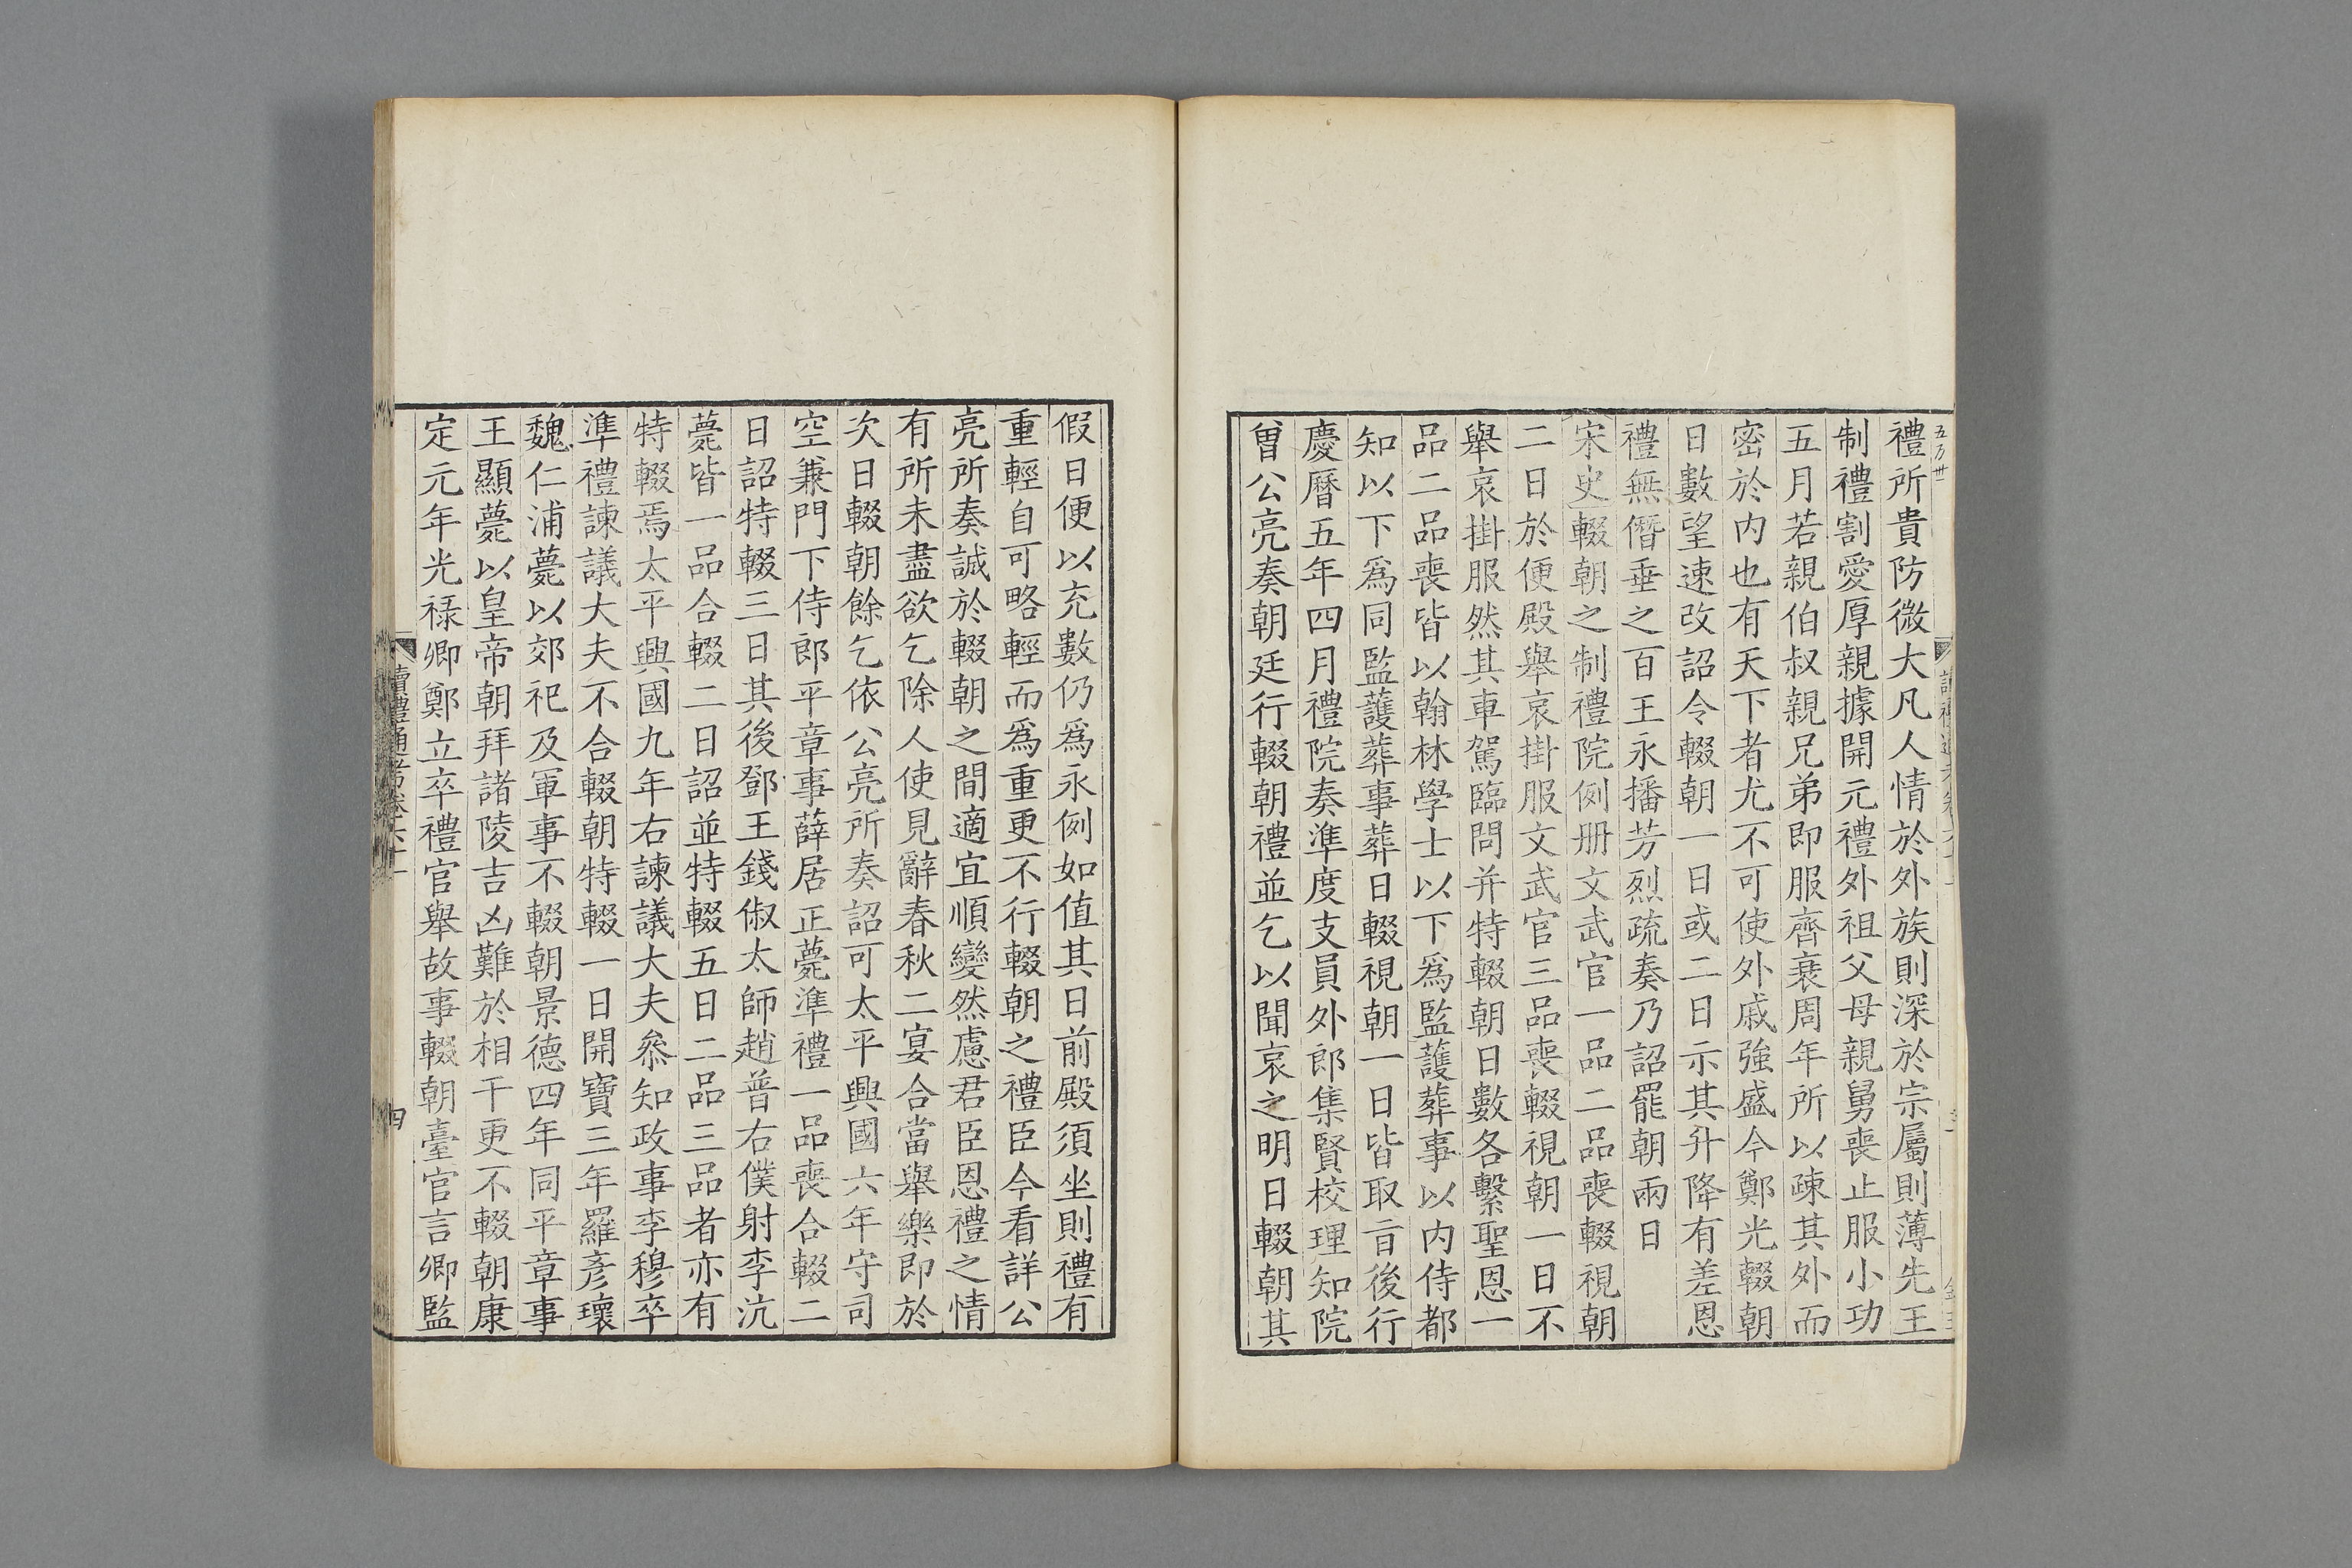 禮所貴防微大凡人情於外族則深於宗屬則薄先王
制禮割愛厚親據開元禮外祖父母親舅喪止服小功
五月若親伯叔親兄弟即服齊衰周年所以疎其外而
密於内也有天下者尤不可使外戚強盛今鄭光輟朝
日數望速改詔令輟朝一日或二日示其升降有差恩
禮無僭垂之百王永播芳烈疏奏乃詔罷朝兩日
宋史輟朝之制禮院例册文武官一品二品喪輟視朝
二日於便殿舉哀掛服文武官三品喪輟視朝一日不
舉哀掛服然其車駕臨問并特輟朝日數各繫聖恩一
品二品喪皆以翰林學士以下爲監護葬事以内侍都
知以下爲同監護葬事葬日輟視朝一日皆取㫖後行
慶曆五年四月禮院奏準度支員外郎集賢校理知院
曾公亮奏朝廷行輟朝禮並乞以聞哀之明日輟朝其
假日便以充數仍爲永例如值其日前殿須坐則禮有
重輕自可略輕而爲重更不行輟朝之禮臣今看詳公
亮所奏誠於輟朝之間適宜順變然慮君臣恩禮之情
有所未盡欲乞除人使見辭春秋二宴合當舉樂即於
次日輟朝餘乞依公亮所奏詔可太平興國六年守司
空兼門下侍郎平章事薛居正薨準禮一品喪合輟二
日詔特輟三日其後鄧王錢俶太師趙普右僕射李沆
薨皆一品合輟二日詔並特輟五日二品三品者亦有
特輟焉太平興國九年右諫議大夫叅知政事李穆卒
準禮諫議大夫不合輟朝特輟一日開寶三年羅彥瓌
魏仁浦薨以郊祀及軍事不輟朝景德四年同平章事
王顯薨以皇帝朝拜諸陵吉凶難於相干更不輟朝康
定元年光祿卿鄭立卒禮官舉故事輟朝臺官言卿監
讀禮通考卷六十一
四